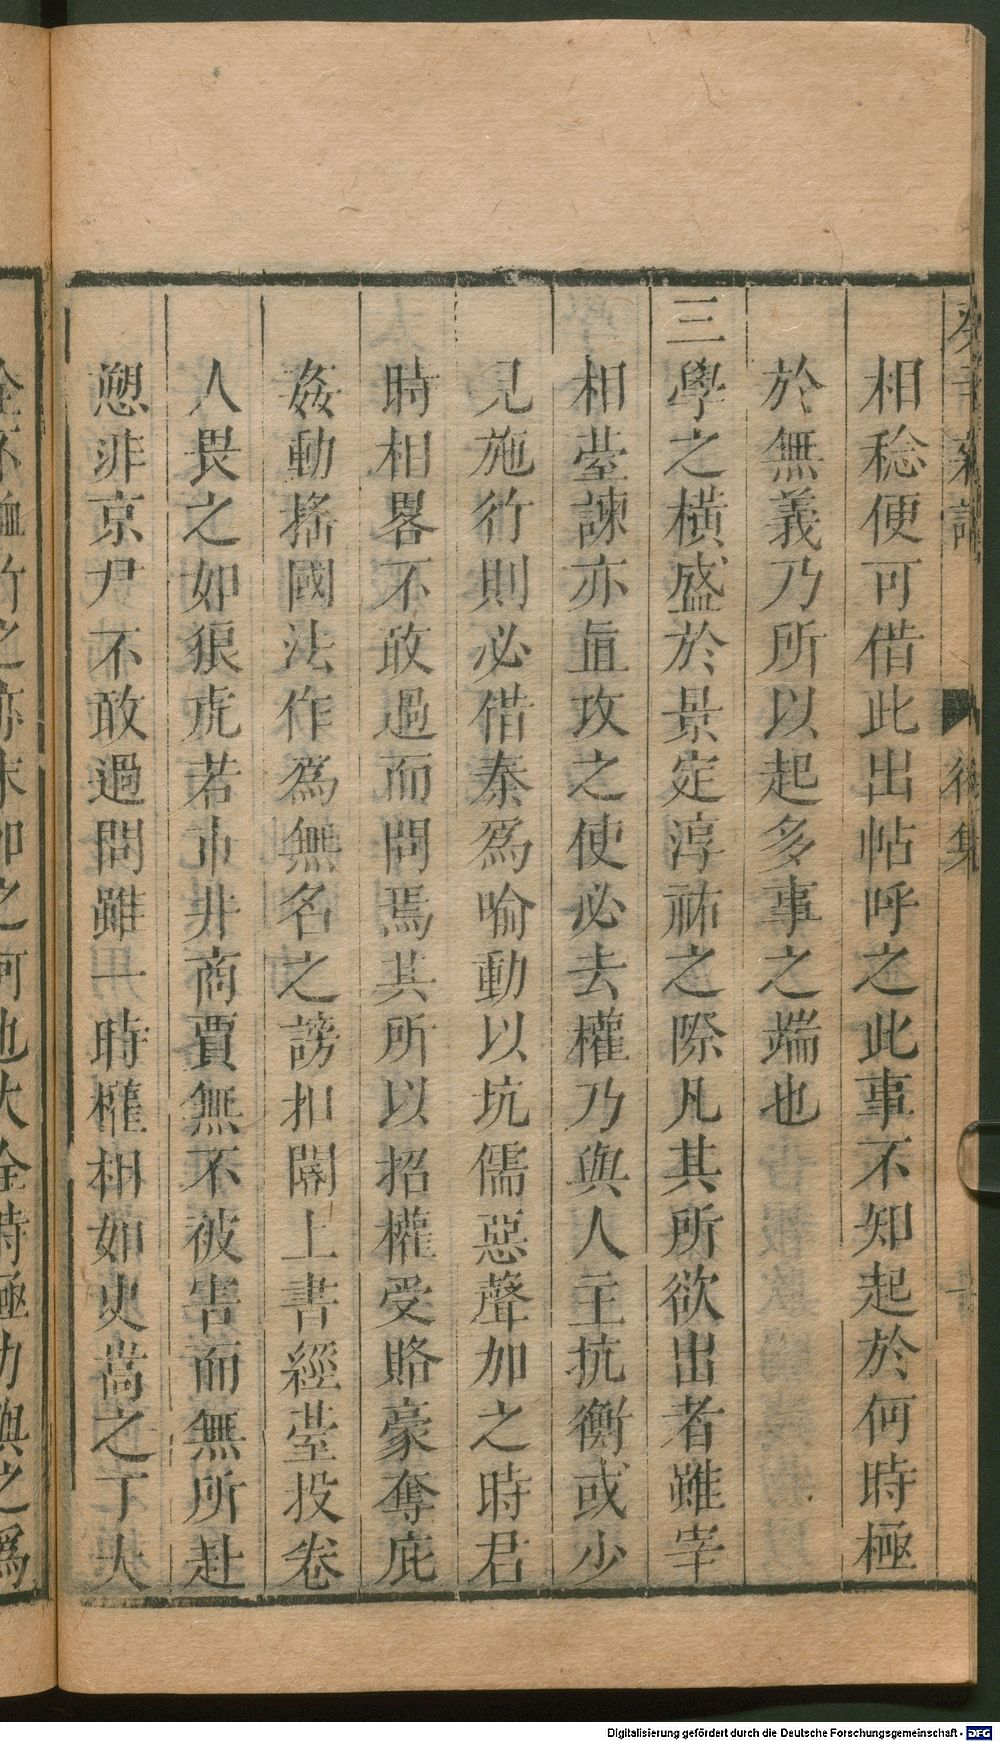 癸辛雜識 後集
相稔便可借此出帖呼之此事不知起於何時極
於無義乃所以起多事之端也
三學之橫盛於景定淳祐之際凡其所欲出者雖宰
相臺諫亦直攻之使必去權乃與人主抗衡或少
見施行則必借秦爲喻動以坑儒惡聲加之時君
時相畧不敢過而問焉其所以招權受賂豪奪庇
姦動搖國法作爲無名之謗扣閽上書經臺投卷
人畏之如狼虎若市井商賈無不被害而無所赴
愬非京尹不敢過問雖一時權相如史嵩之丁大
全不恤行之亦末如之何也大全時極力與之爲
Digitalisierung gefördert durch die Deutsche Forschungsgemeinschaft - DFG